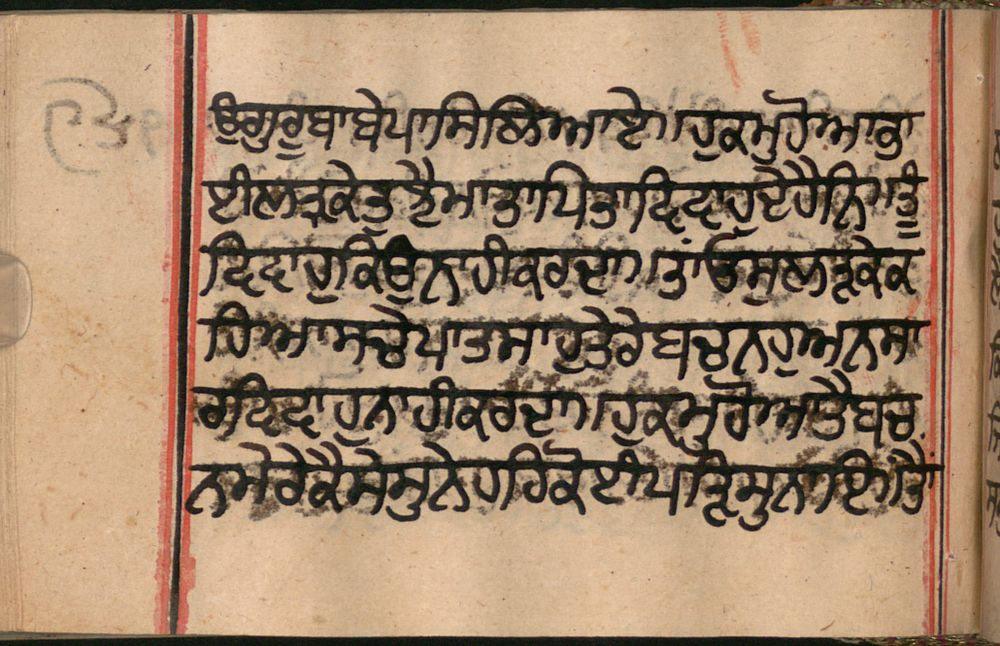 ਓੁਗੁਰੁਬਾਬੇਪਾਸਿਲਿਆਏ॥ਹੁਕਮੁਹੋਆਭਾ
ਈਲੜਕੇਤੁਝੈਮਾਤਾਪਿਤਾਵਿਵਾਹੁਦੇਹੈਨਿਮਤੂੰ
ਵਿਵਾਹੁਕਿਓੁਨਾਹੀਕਰਦਾ॥ਤਾਂਓਸੁਲੜਕੇਕ
ਹਿਆਸਚੇਪਾਤਸਾਹੁਤੇਰੇਬਚਨਹੁਅਨਸਾ
ਰਵਿਵਾਹੁਨਾਹੀਕਰਦਾ॥ਹੁਕਮੁਹੋਆਤੈਬਚ
ਨਮੇਰੇਕੈਸੇਸੁਨੇਹਹਿਕੋਈਪੜਿਸੁਨਾਇ॥ਤਾਂ